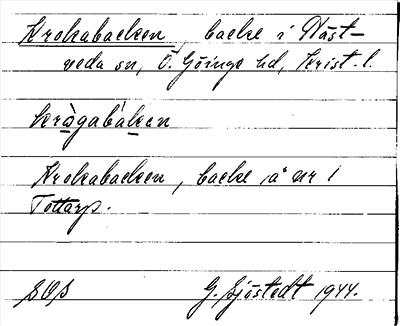 Krokabacken, backe i Näst-
veda sn, Ö. Göinge hd, Krist. l.
krògabáken
Krokabacken, backe å nr 1
Tottarp.
SOS G. Sjöstedt 1944.